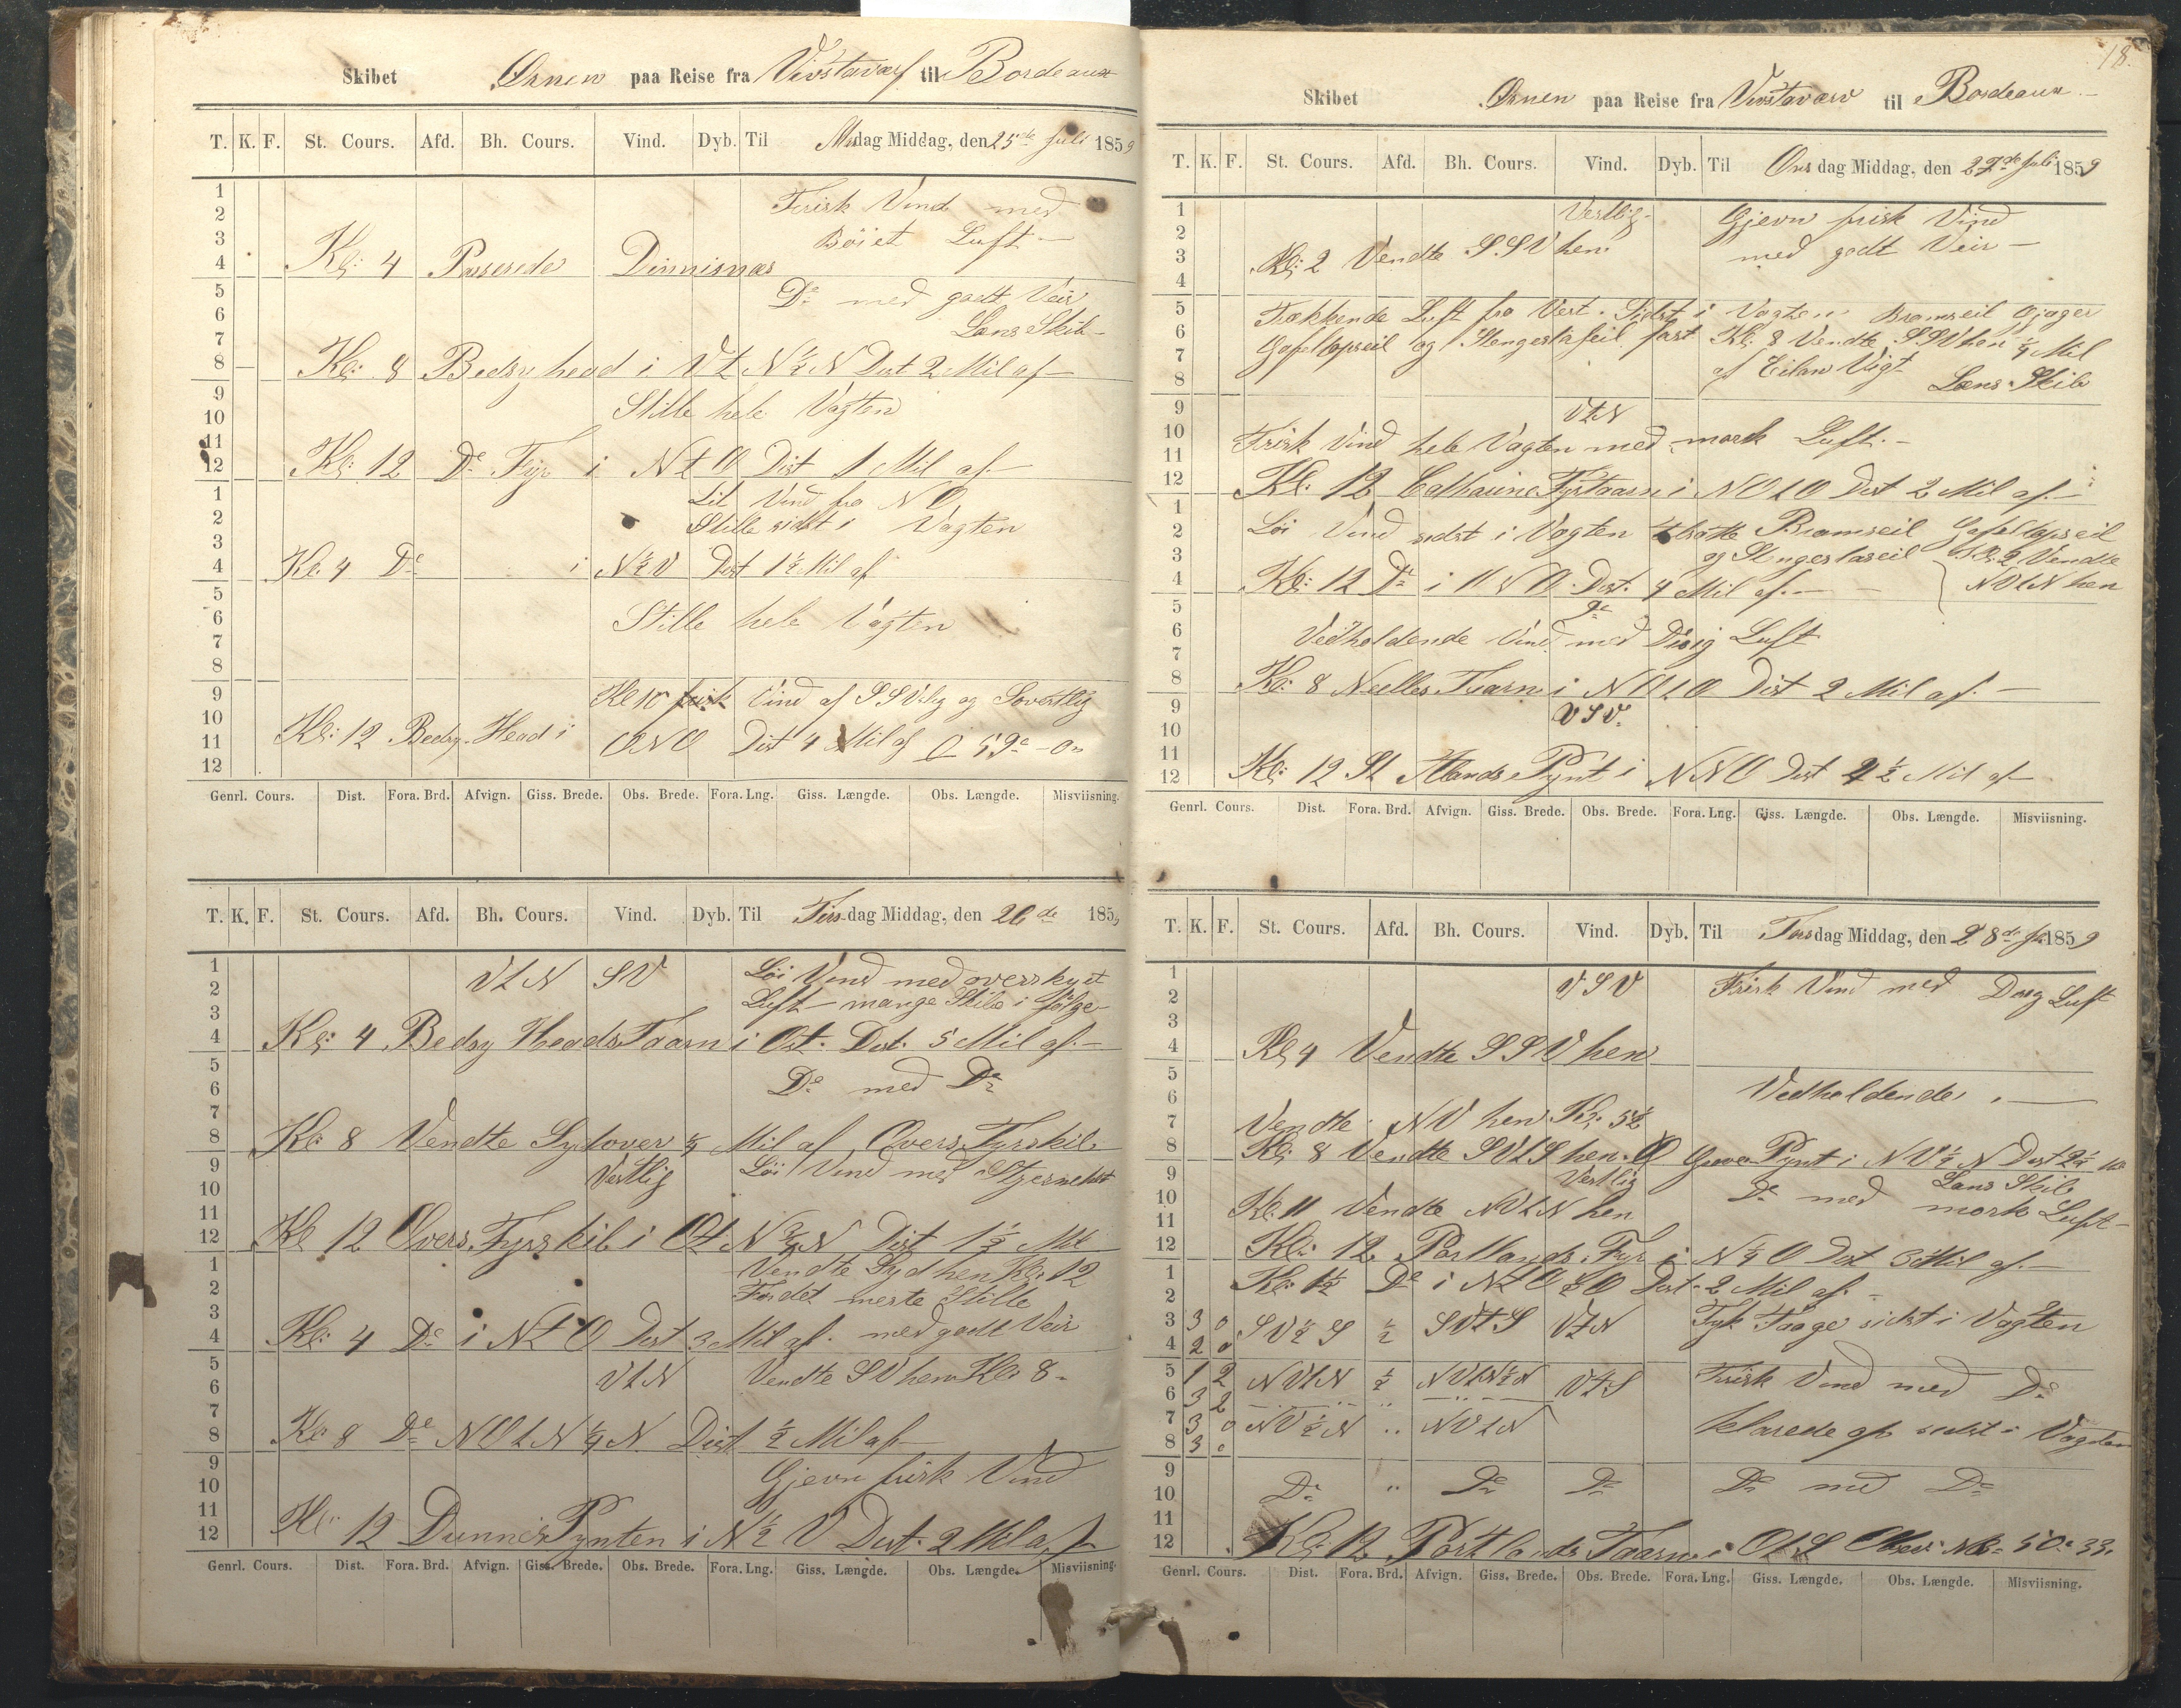 Skibet Ørnen paa Reise fra Vivstavarf til Bordeaux
T. K. F. St. Cours. Afd. Bh. Cours. Vind. Dyb. Til Mandag Middag, den 25de Juli 1859
1
2
3
4
5
6
7
8
9
10
11
12
1
2
3
4
5
6
7
8
9
10
11
12
Frisk Vind med
Böiet Luft
Kl: 4 Passerede
Do med godt Veir
Lens Skib
Kl: 8 i Vt N ½ N Dist 2 Mil af
Stille hele Vagten
Kl: 12 Do Fyr i NtO Dist 1 Mil af
Lit Vind fra NO
Stille sidst i Vagten
Kl. 4 Do i N½V Dist 1½ Mil af
Stille hele Vagten
Kl 10 frisk Vind af SSVlig og
Kl: 12 Head i ONO Dist 4 Mil af
Genrl. Cours. Dist. Fora. Brd. Afvign. Giss. Brede. Obs. Brede. Fora. Lng. Giss. Længde. Obs. Længde. Misviisning.
T. K. F. St. Cours. Afd. Bh. Cours. Vind. Dyb. Til Tirsdag Middag, den 26de 1859
1
2
3
4
5
6
7
8
9
10
11
12
1
2
3
4
5
6
7
8
9
10
11
12
VtN SV Löi Vind med overskyet
Luft mange Skibe i Følge
Kl: 4 Heads Taarn i Ost. Dist. 5 Mil af
Do med Do
Kl: 8 Vendte Sydover ¼ Mil af Overs Fyrskib
Vestlig Löi Vind med
Kl 12 Overs Fyrskib i Ot N ¾ N Dist 1½ Mil
Vendte Syd hen Kl: 12
For det meste Stille
Kl: 4 Do i NtO Dist 3 Mil af. med godt Veir
VtN Vendte SV hen Kl: 8
Kl: 8 Do NOtN ¼ N. Dist ½ Mil af
Gjevn frisk Vind
Kl: 12 Pynten i N ½ V Dist. 2 Mil af
Genrl. Cours. Dist. Fora. Brd. Afvign. Giss. Brede. Obs. Brede. Fora. Lng. Giss. Længde. Obs. Længde. Misviisning.
18.
Skibet Ørnen paa Reise fra Vivstavarv til Bordeaux
T. K. F. St. Cours. Afd. Bh. Cours. Vind. Dyb. Til Onsdag Middag, den 27de Juli 1859
1
2
3
4
5
6
7
8
9
10
11
12
1
2
3
4
5
6
7
8
9
10
11
12
Vestlig Gjevn frisk Vind
Kl: 2 Vendte SSV hen med godt Veir
Trækkende Luft fra Vest. Sidst i Vagten Bramseil Ojager
Gafeltopseil og Stengestaseil fast Kl: 8 Vendte SSV hen ¼ Mil
af
Lens Skib
VtN
Frisk Vind hele Vagten med mørk Luft
Kl: 12 Catharine Fyrtaarn i NOtO Dist 2 Mil af
Löi Vind sidst i Vagten tilsatte Bramseil Gafeltopseil
og Stengestaseil Kl: 2 Vendte
NVtN hen
Kl: 12 Do i ONO Dist. 4 Mil af.
Do
Vedholdende Vind med Disig Luft
Kl: 8 Needles Taarn i NOtO Dist 2 Mil af.
VSV.
Kl: 12 St Albands Pynt i NNO Dist 4½ Mil af
Genrl. Cours. Dist. Fora. Brd. Afvign. Giss. Brede. Obs. Brede. Fora. Lng. Giss. Længde. Obs. Længde. Misviisning.
T. K. F. St. Cours. Afd. Bh. Cours. Vind. Dyb. Til Torsdag Middag, den 28de Ju 1859
1
2
3
4
5
6
7
8
9
10
11
12
1
2
3
4
5
6
7
8
9
10
11
12
VSV Frisk Vind med Luft
Kl 4 Vendte SSV hen
Vedholdende
Vendte NV hen Kl: 5½
Kl: 8 Vendte SVtS hen Pynt i NV½N Dist 2½
Vestlig Lens Skib
Do med
Kl: 11 Vendte NVtN hen mørk Luft
Kl: 12 Portlands Fyr i N¼O Dist 3 Mil af
Kl: 1½ Do i NtO ½ O Dist 2 Mil af.
3 0 SV½S ½ SVtS VtN Tyk Taage sidst i Vagten
2 0
1 2 NVtN ½ NVtN½N VtS Frisk Vind med Do
3 2
3 0 NV½N " NVtN klarede op sidst i Vagten
3 0
Do " Do Do Do med Do
Kl: 12 Portlands Taarn i OtS 50° 33
Genrl. Cours. Dist. Fora. Brd. Afvign. Giss. Brede. Obs. Brede. Fora. Lng. Giss. Længde. Obs. Længde. Misviisning.